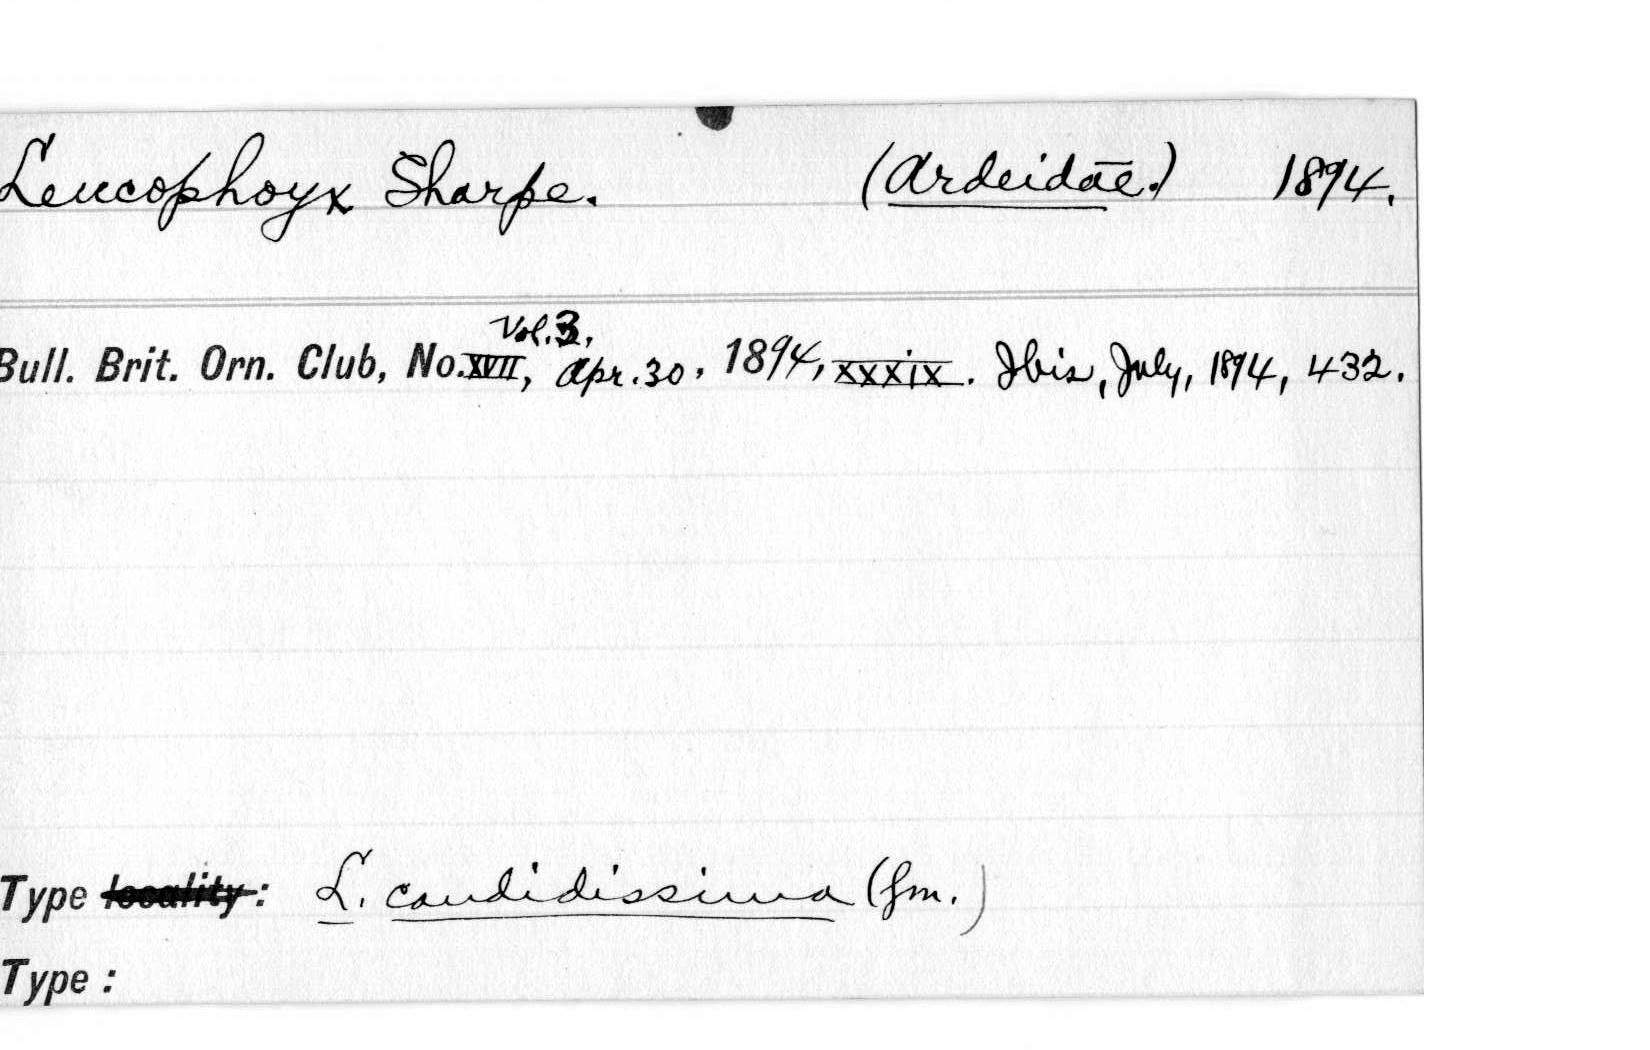 Leucophoyx Sharpe. (Ardeidae.) 1894.
Vol. 3,
Bull. Brit. Orn. Club, No. XVII, Apr. 30, 1894, xxxix. Ibis, July, 1894, 432.
Type locality: L. candidissima (Gm.)
Type: